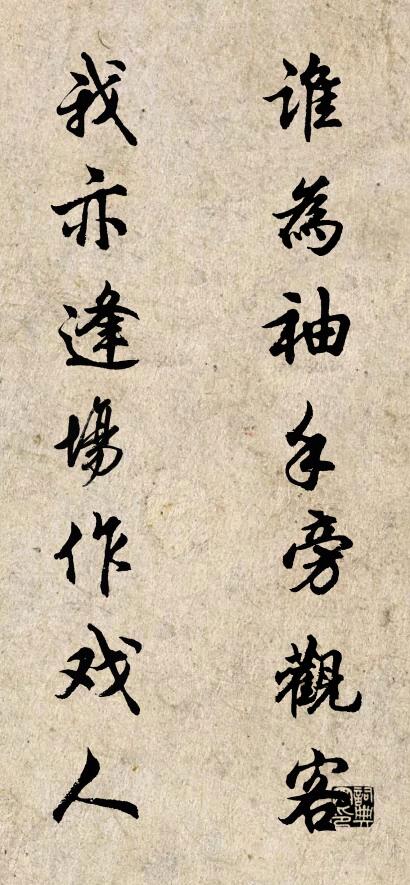 誰為袖手旁觀客
我亦逢場作戏人